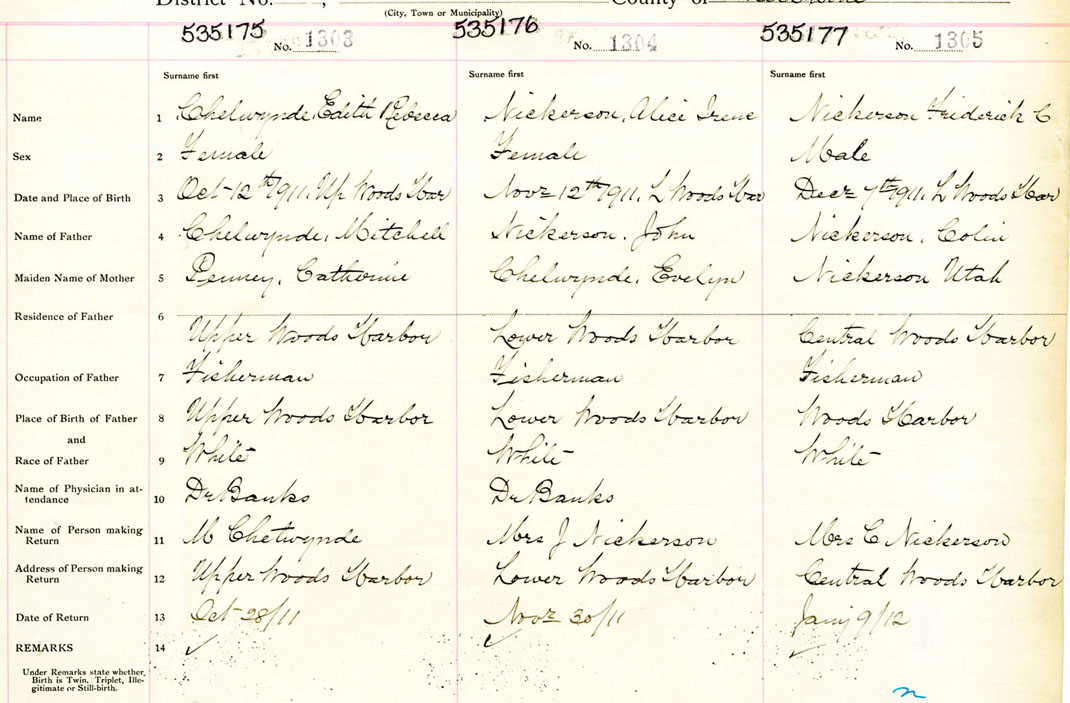 District No. , County of
(City, Town or Municipality)
535175 535176 535177
No. 1303 No. 1304 No. 1305
Surname first Surname first Surname first
Name 1 Chelwynde, Edith Rebecca Nickerson, Alice Irene Nickerson Friderick C
Sex 2 Female Female Male
Date and Place of Birth 3 Oct 12th/911, Up Woods Har Novr 12th/911, L Woods Har Decr 7th/911, L Woods Har
Name of Father 4 Chelwynde, Mitchell Nickerson, John Nickerson, Colin
Maiden Name of Mother 5 Penney, Catherine Chelwynde, Evelyn Nickerson Utah
Residence of Father 6
Upper Woods Harbor Lower Woods Harbor Central Woods Harbor
Occupation of Father 7 Fisherman Fisherman Fisherman
Place of Birth of Father 8 Upper Woods Harbor Lower Woods Harbor Woods Harbor
and
Race of Father 9 White White White
Name of Physician in at-
tendance 10 Dr Banks Dr Banks
Name of Person making
Return 11 M Chetwynde Mrs J Nickerson Mrs C Nickerson
Address of Person making
Return 12 Upper Woods Harbor Lower Woods Harbor Central Woods Harbor
Date of Return 13 Oct 28/11 Novr 30/11 Jany 9/12
REMARKS 14
Under Remarks state whether
Birth is Twin, Triplet, Ille-
gitimate or Still-birth.